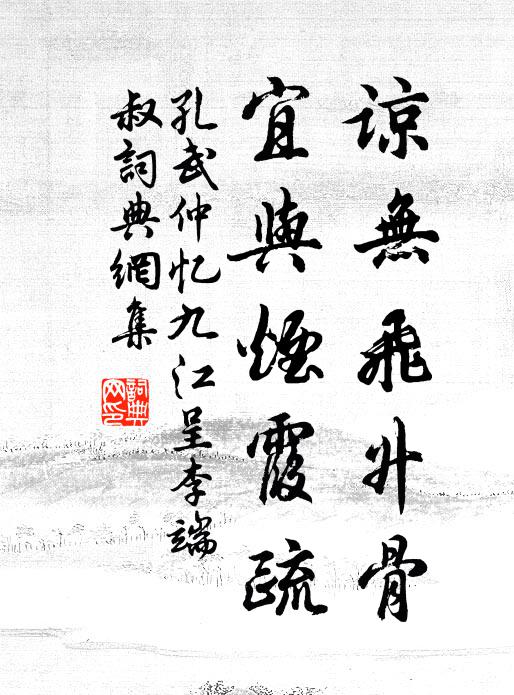 諒無飛升骨
宜與煙霞疏
孔武仲忆九江呈李端
叔詞典網集
詞典
网印